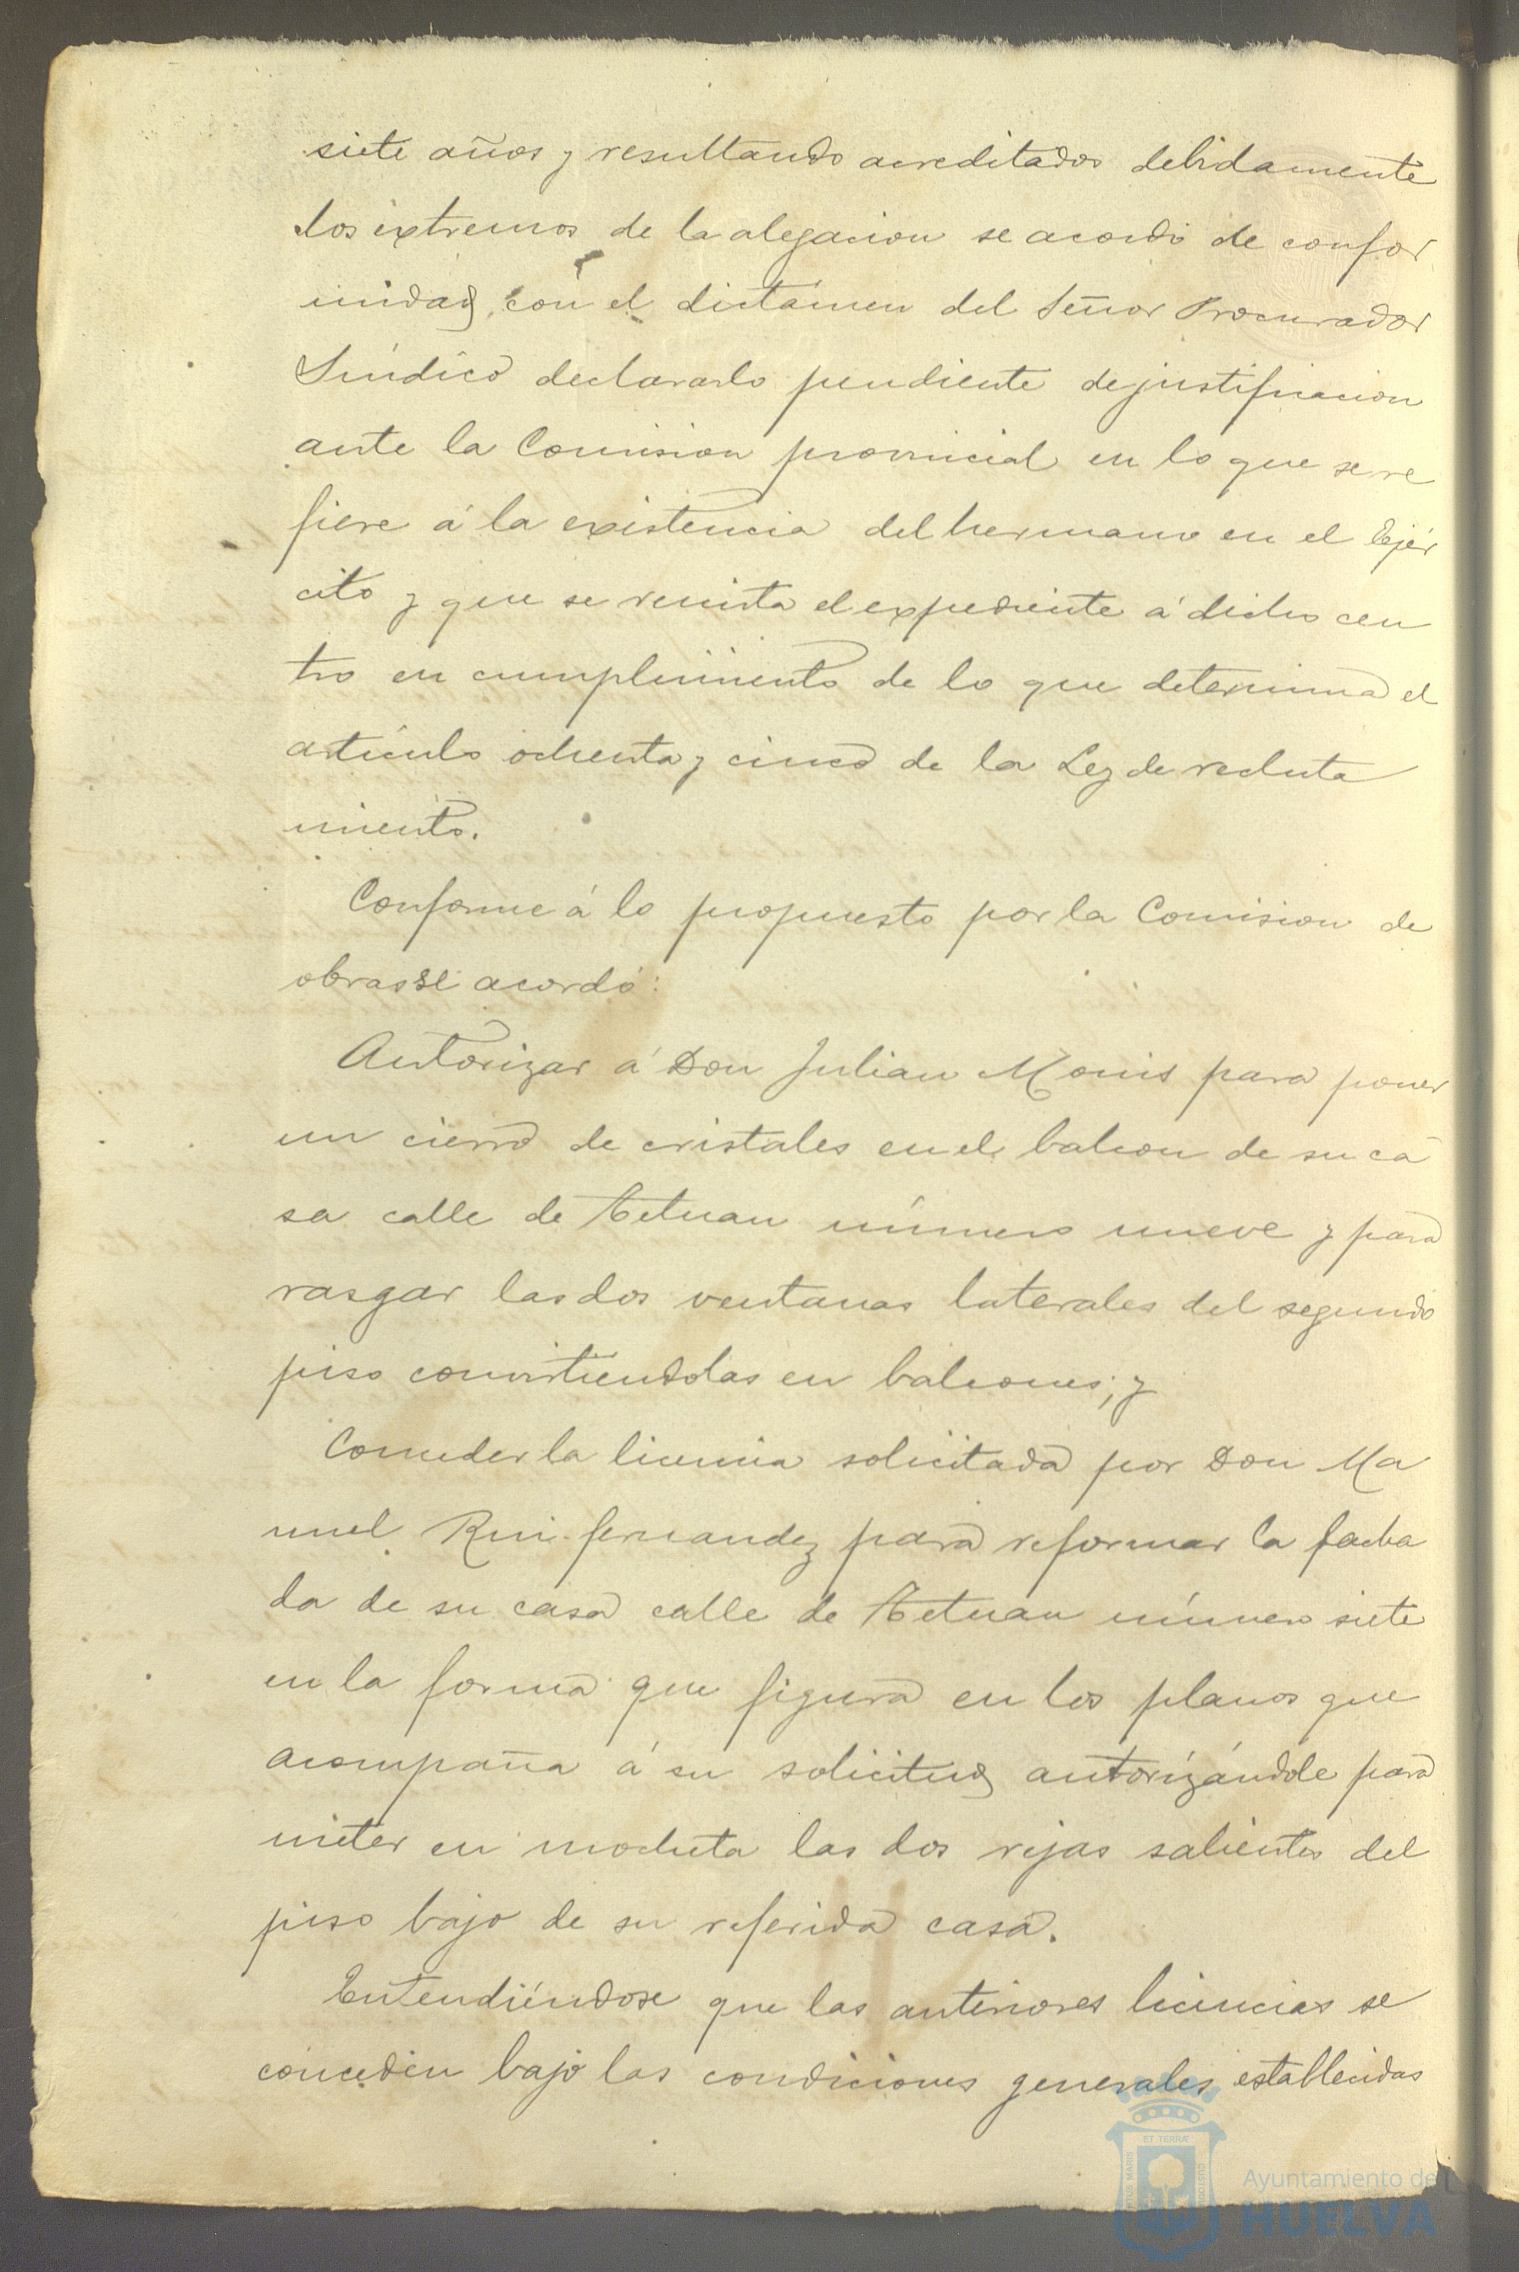 siete años y resultando acreditados debidamente
los extremos de la alegacion se acordó de confor
midad con el dictámen del Señor Procurador
Síndico declararlo pendiente de justificacion
ante la Comision provincial en lo que se re
fiere á la existencia del hermano en el Ejér
cito y que se remita el expediente á dicho cen
tro en cumplimiento de lo que determina el
artículo ochenta y cinco de la Ley de recluta
miento.
Conforme á lo propuesto por la Comision de
obras se acordó:
Autorizar á Don Julian Monis para poner
un cierro de cristales en el balcon de su ca
sa calle de Tetuan número nueve y para
rasgar las dos ventanas laterales del segundo
piso convirtiendolas en balcones; y
Conceder la licencia solicitada por Don Ma
nuel Rui-fernandez para reformar la facha
da de su casa calle de Tetuan número siete
en la forma que figura en los planos que
acompaña á su solicitud autorizándole para
meter en mocheta las dos rejas salientes del
piso bajo de su referida casa.
Entendiéndose que las anteriores licencias se
conceden bajo las condiciones generales establecidas
ET TERRÆ
PORTUS MARIS
CUSTODIA
Ayuntamiento de
HUELVA